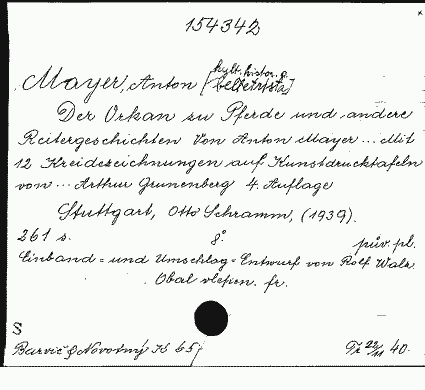 154342
Mayer, Anton [kult. histor. a
beletrista]
Der Orkan zu Pferde und andere
Reitergeschichten Von Anton Mayer ... Mit
12 Kreidezeichnungen auf Kunstdrucktafeln
von ... Arthur Grunenberg 4. Auflage
Stuttgart, Otto Schramm, (1939).
261 s. 8° pův. pl.
Einband = und Umschlag = Entwurf von Rolf Walz.
Obal vlepen. fr.
S
Barvič & Novotný K 65,- Fr 22/11 40.